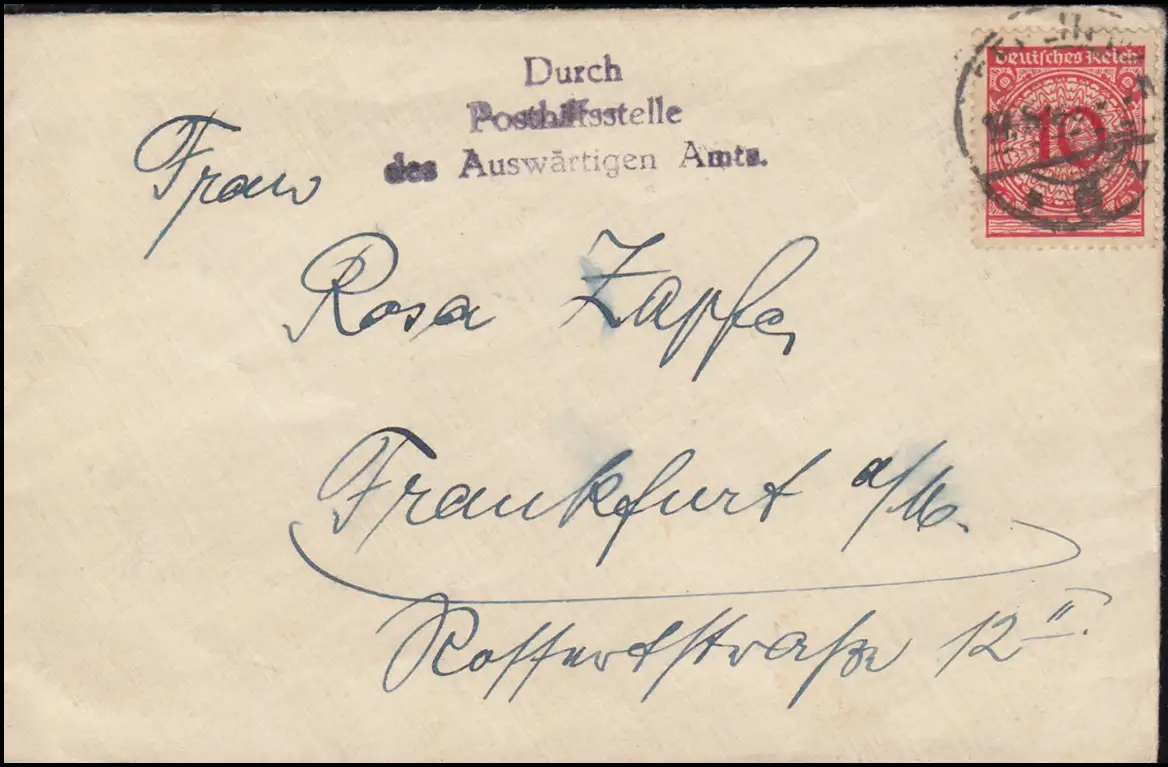 Durch
Posthilfsstelle
des Auswärtigen Amts.
Deutsches Reich
10
Frau
Rosa Zapfe,
Frankfurt a/M.
Rossertstraße 12 II.